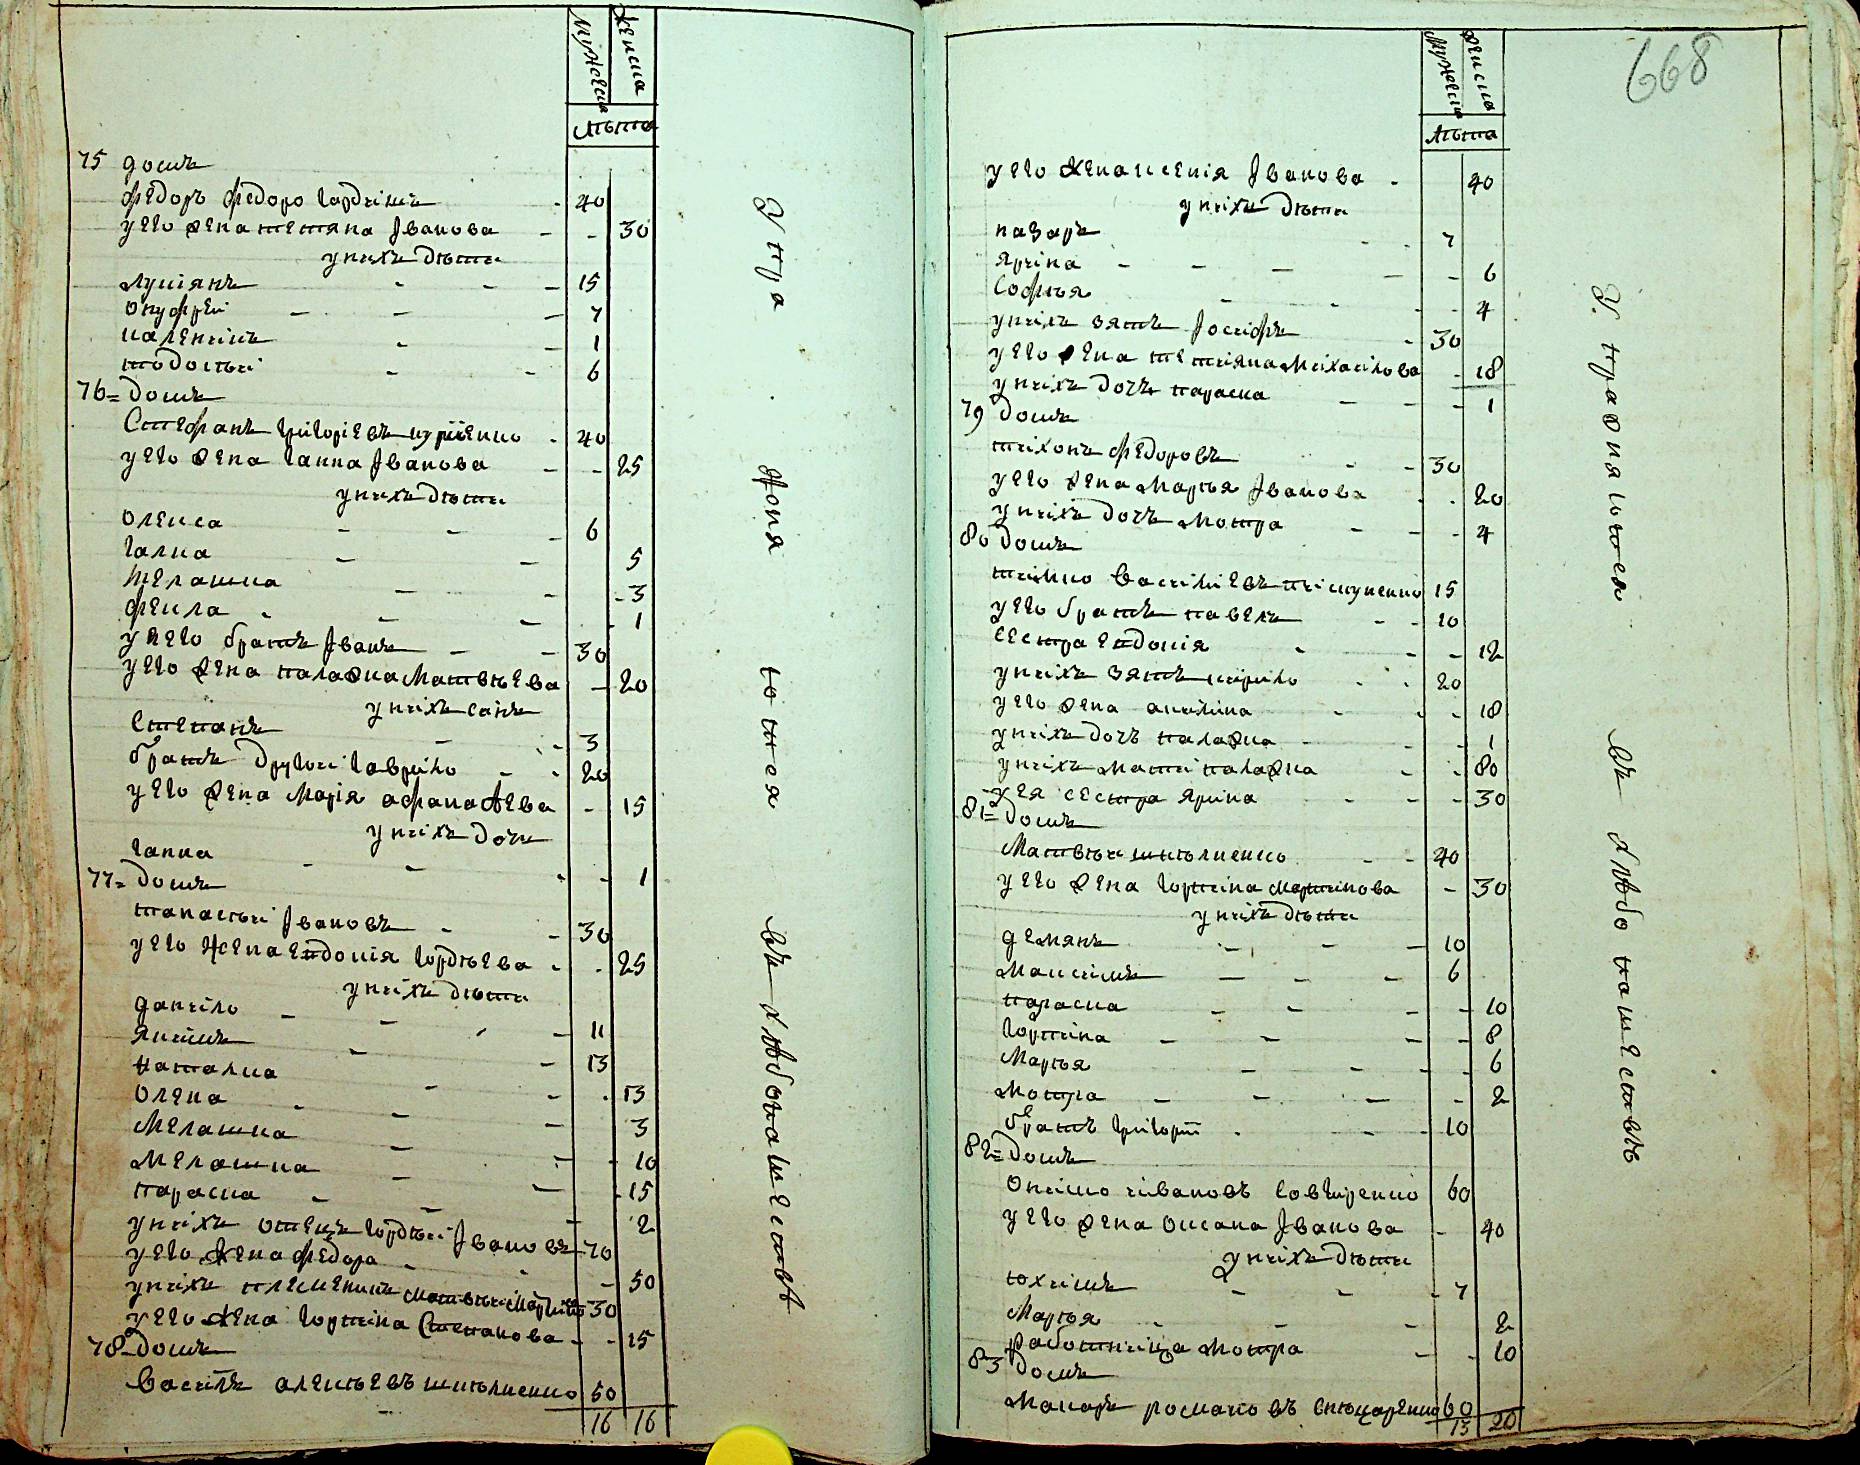 Мужеска
Женска
Лѣта
75 домъ
Федоръ Федоро Гордѣикъ - 40
у его жена Тетяна Іванова - - 30
у нихъ дѣти
Лукіянъ - - - 15
Онуфреи - - - 7
Каленикъ - - 1
Тодоссѣи - - 6
76= домъ
Стефанъ Григоріевъ - 40
у его жена Ганна Іванова - - 25
у нихъ дѣти
Олекса - - - 6
Галка - - 5
Мелашка - - - 3
Фекла - - - 1
у него братъ Іванъ - - 30
у его жена Палажка Матвѣева - 20
у нихъ синъ
Степанъ - - 3
братъ другои Гаврило - - 20
у его жена Марія Афанасѣева - 15
у нихъ дочь
Ганна - - - - 1
77= домъ
Панасѣи Івановъ - - 30
у его жена Евдокія Гордѣева - - 25
у нихъ дѣти
Данило - -
Якимъ - - 11
Наталка - - 13
Олена - - - - 13
Мелашка - - 3
Мелашка - - - 10
Параска - - - 15
у нихъ отецъ Гордѣи Івановъ 70
у его жена Федора - - 50
у нихъ племеникъ Матвѣи 30
у его жена Горпина Степанова - - 15
78= домъ
Василь Алексѣевъ Школненко 50
16 16
Утра
Коня
ютея
въ Любопашествѣ
668
Мужеска
Женска
Лѣта
у его жена Ксенія Іванова - 40
у нихъ дѣти
Назаръ - - 7
Ярина - - - - - 6
Софѣя - - - - 4
у нихъ зять Іосифъ - 30
у его жена Тетіяна Михаилова - 18
у нихъ дочь Параска - - - 1
79 домъ
Тихонъ Федоровъ - - 30
у его жена Марѣя Іванова - - 20
у нихъ дочь Мотра - - - 4
80 домъ
Тимко Василіевъ 15
у его братъ Павелъ - - 10
сестра Евдокія - - - 12
у нихъ зять Кирило - - 20
у его жена Акилина - - - 18
у нихъ дочь Палажка - - 1
у нихъ мати Палажка - - 80
у ея сестра Ярина - - - 30
81= домъ
Матвѣи Школненко - - 40
у его жена Горпина Мартинова - 30
у нихъ дѣти
Демянъ - - - 10
Максимъ - - - 6
Параска - - - - 10
Горпина - - - - 8
Марѣя - - - - 6
Мотра - - - - 2
братъ Григорій - - - 10
82= домъ
Ониско Ивановъ 60
у его жена Оксана Іванова - - 40
у нихъ дѣти
Юхимъ - - - 7
Марѣя - - - - 2
работница Мотра - - 10
83 домъ
Макаръ Романовъ 60
13 20
въ Любопашествѣ